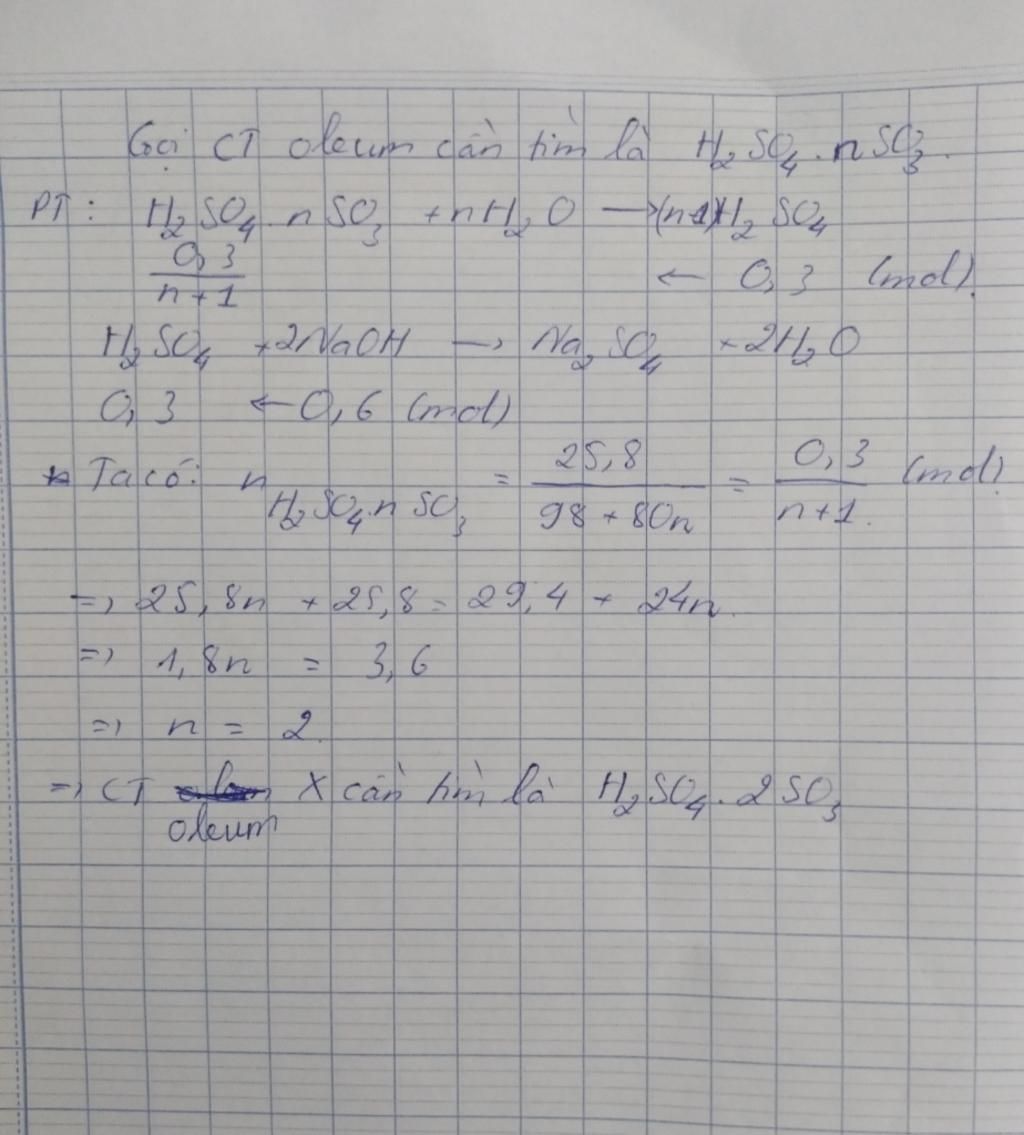 Gọi CT oleum cần tìm là H₂SO₄.nSO₃
PT: H₂SO₄.nSO₃ + nH₂O → (n+1)H₂SO₄
0,3/(n+1) ← 0,3 (mol)
H₂SO₄ + 2NaOH → Na₂SO₄ + 2H₂O
0,3 ← 0,6 (mol)
* Ta có: n H₂SO₄.nSO₃ = 25,8/(98 + 80n) = 0,3/(n+1) (mol)
=> 25,8n + 25,8 = 29,4 + 24n
=> 1,8n = 3,6
=> n = 2
=> CT oleum X cần tìm là H₂SO₄.2SO₃